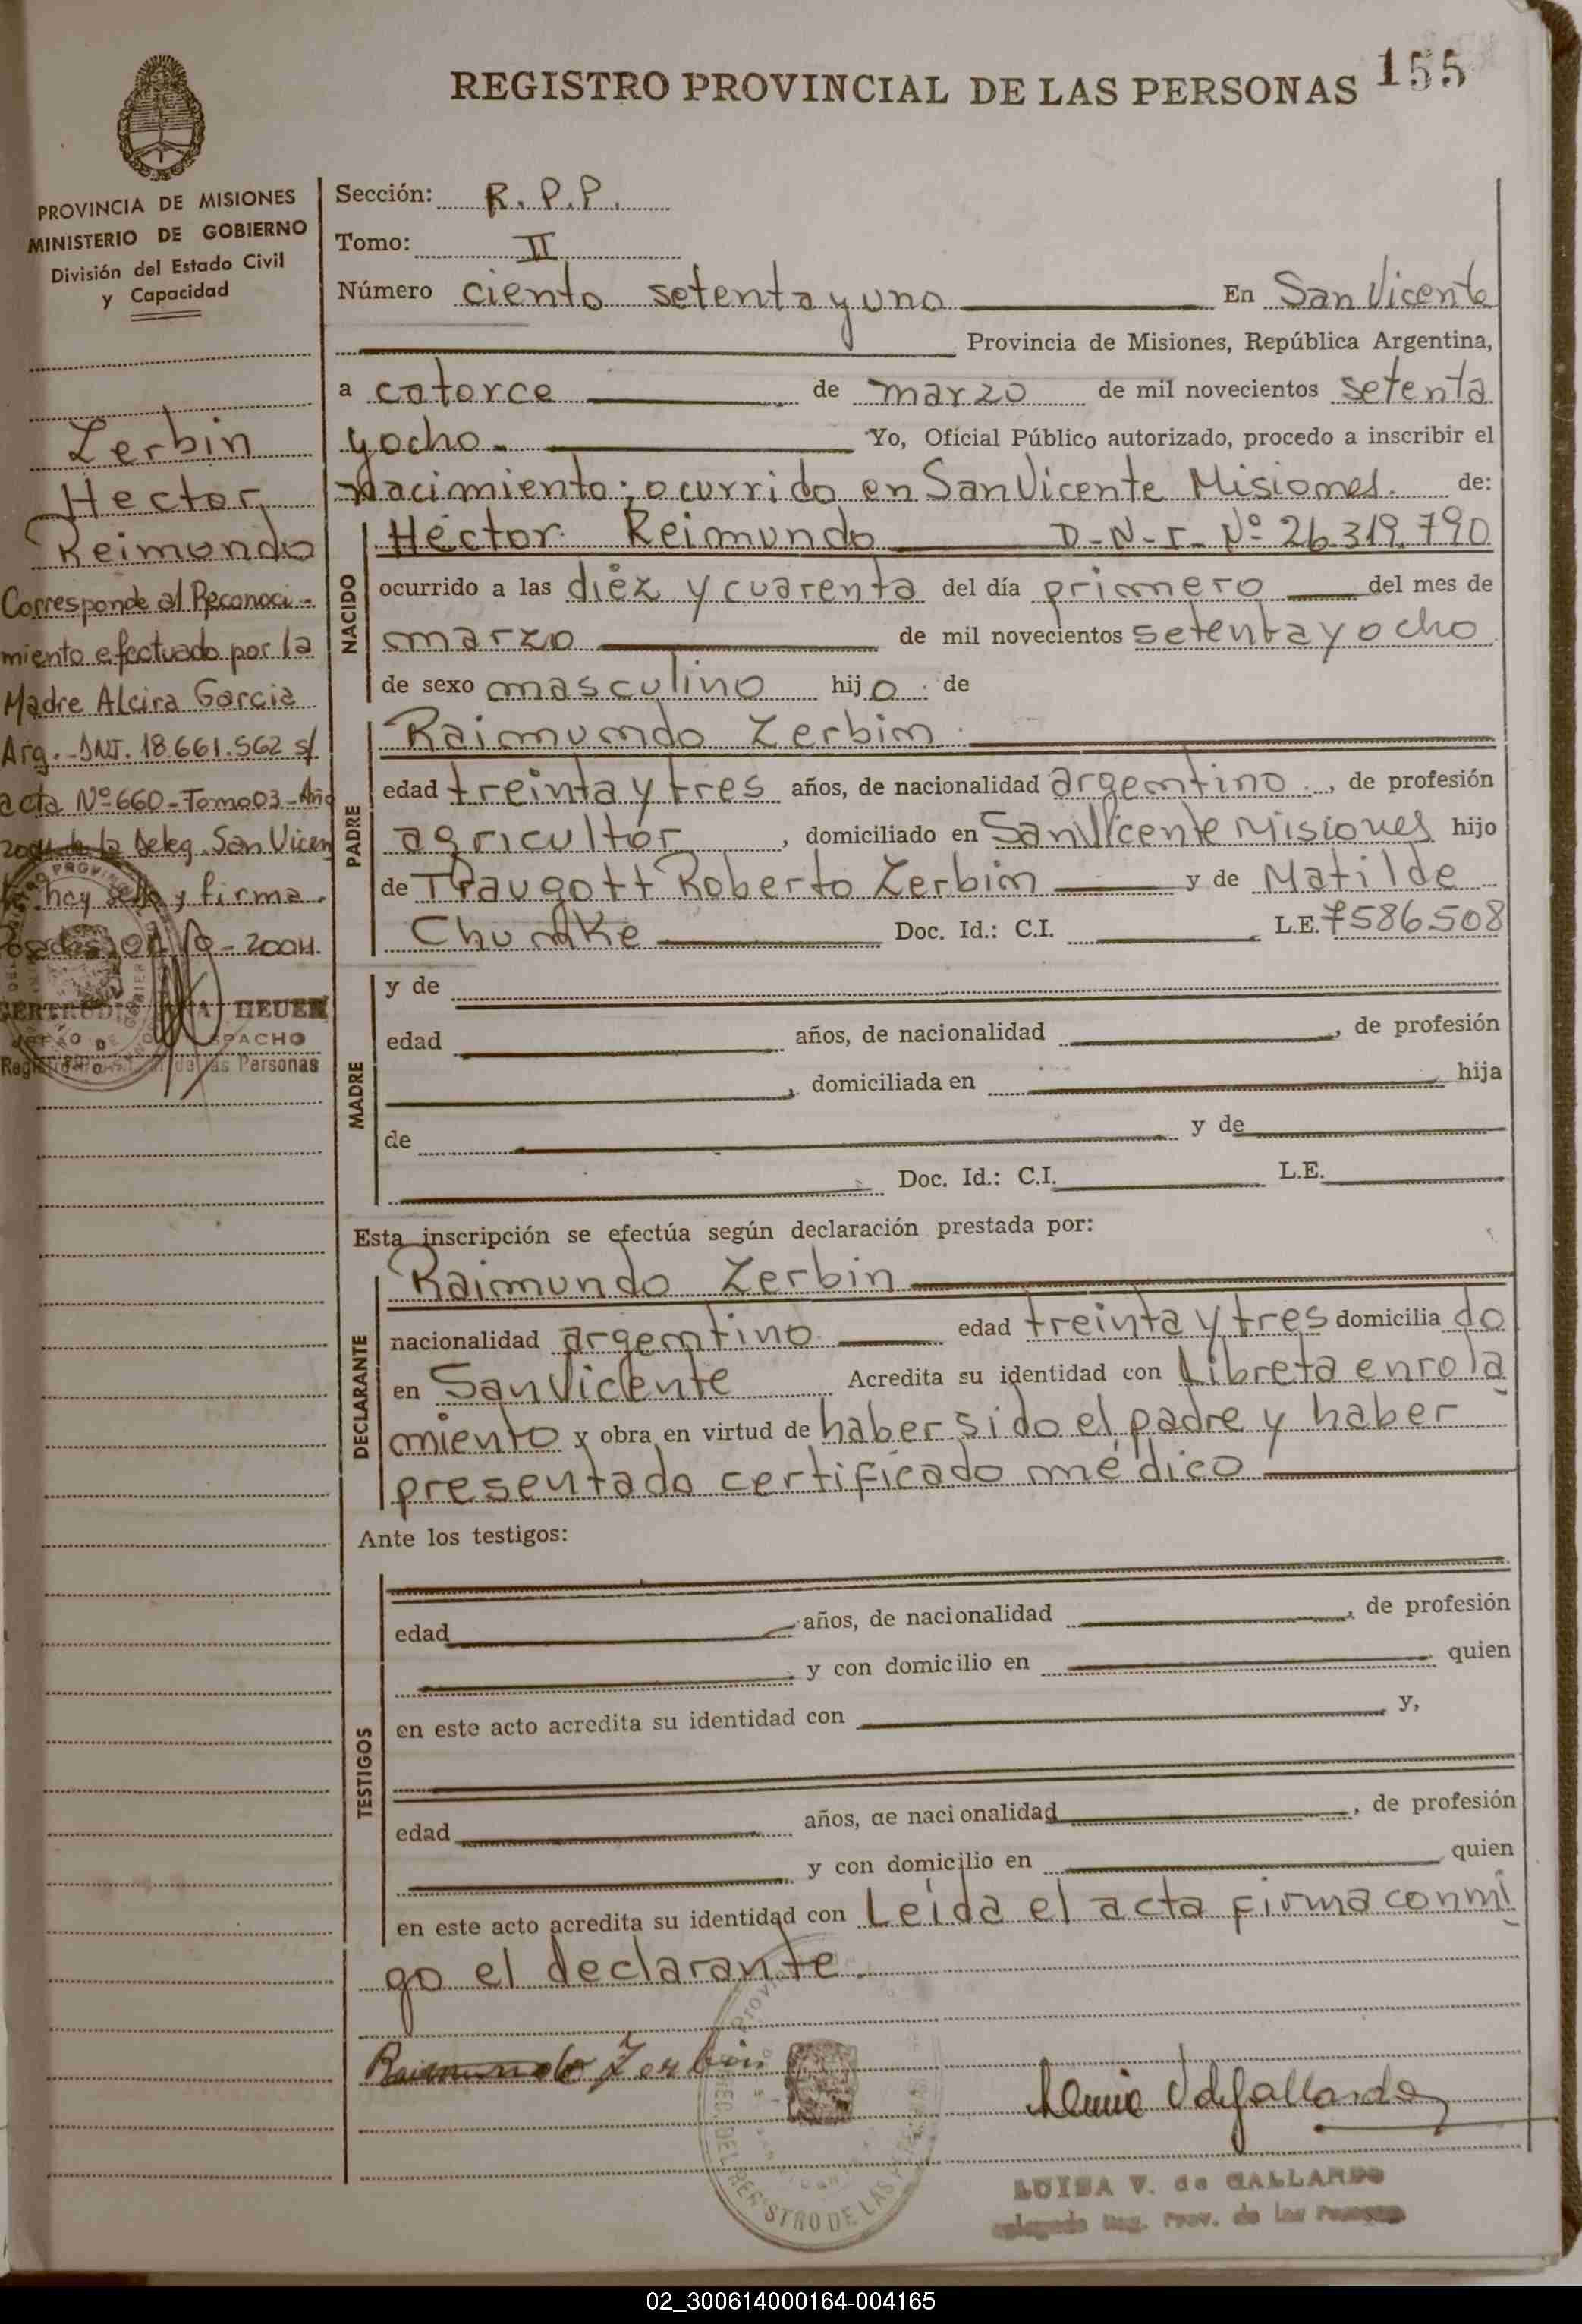 REGISTRO PROVINCIAL DE LAS PERSONAS 155
PROVINCIA DE MISIONES
MINISTERIO DE GOBIERNO
División del Estado Civil
y Capacidad
Zerbin
Hector
Reimundo
Corresponde al Reconoci-
miento efectuado por la
Madre Alcira Garcia
Arg.-DNI. 18.661.562 s/
acta Nº 660-Tomo 03-Año
2004 de la Deleg. San Vicen
hoy sello y firma.
Posadas, 2004.
HEUER
DESPACHO
de las Personas
Sección: R.P.P.
Tomo: II
Número ciento setenta y uno En San Vicente
Provincia de Misiones, República Argentina,
a catorce de marzo de mil novecientos setenta
y ocho. Yo, Oficial Público autorizado, procedo a inscribir el
nacimiento; ocurrido en San Vicente Misiones. de:
NACIDO
Héctor Reimundo D-N-I-Nº 26.319.790
ocurrido a las diéz y cuarenta del día primero del mes de
marzo de mil novecientos setenta y ocho
de sexo masculino hijo de
PADRE
Raimundo Zerbin
edad treinta y tres años, de nacionalidad argentino, de profesión
agricultor, domiciliado en San Vicente Misiones hijo
de Traugott Roberto Zerbin y de Matilde
Doc. Id.: C.I. L.E. 7586508
MADRE
y de
edad años, de nacionalidad , de profesión
, domiciliada en hija
de y de
Doc. Id.: C.I. L.E.
Esta inscripción se efectúa según declaración prestada por:
DECLARANTE
Raimundo Zerbin
nacionalidad argentino edad treinta y tres domiciliado
en San Vicente Acredita su identidad con Libreta enrola
miento y obra en virtud de haber sido el padre y haber
presentado certificado médico
Ante los testigos:
TESTIGOS
edad años, de nacionalidad , de profesión
y con domicilio en quien
en este acto acredita su identidad con y,
edad años, de nacionalidad , de profesión
y con domicilio en quien
en este acto acredita su identidad con Leída el acta firma conmi
go el declarante.
Raimundo Zerbin
LUISA V. de GALLARDO
Reg. Prov. de las Personas
DEL REGISTRO DE LAS
02_300614000164-004165